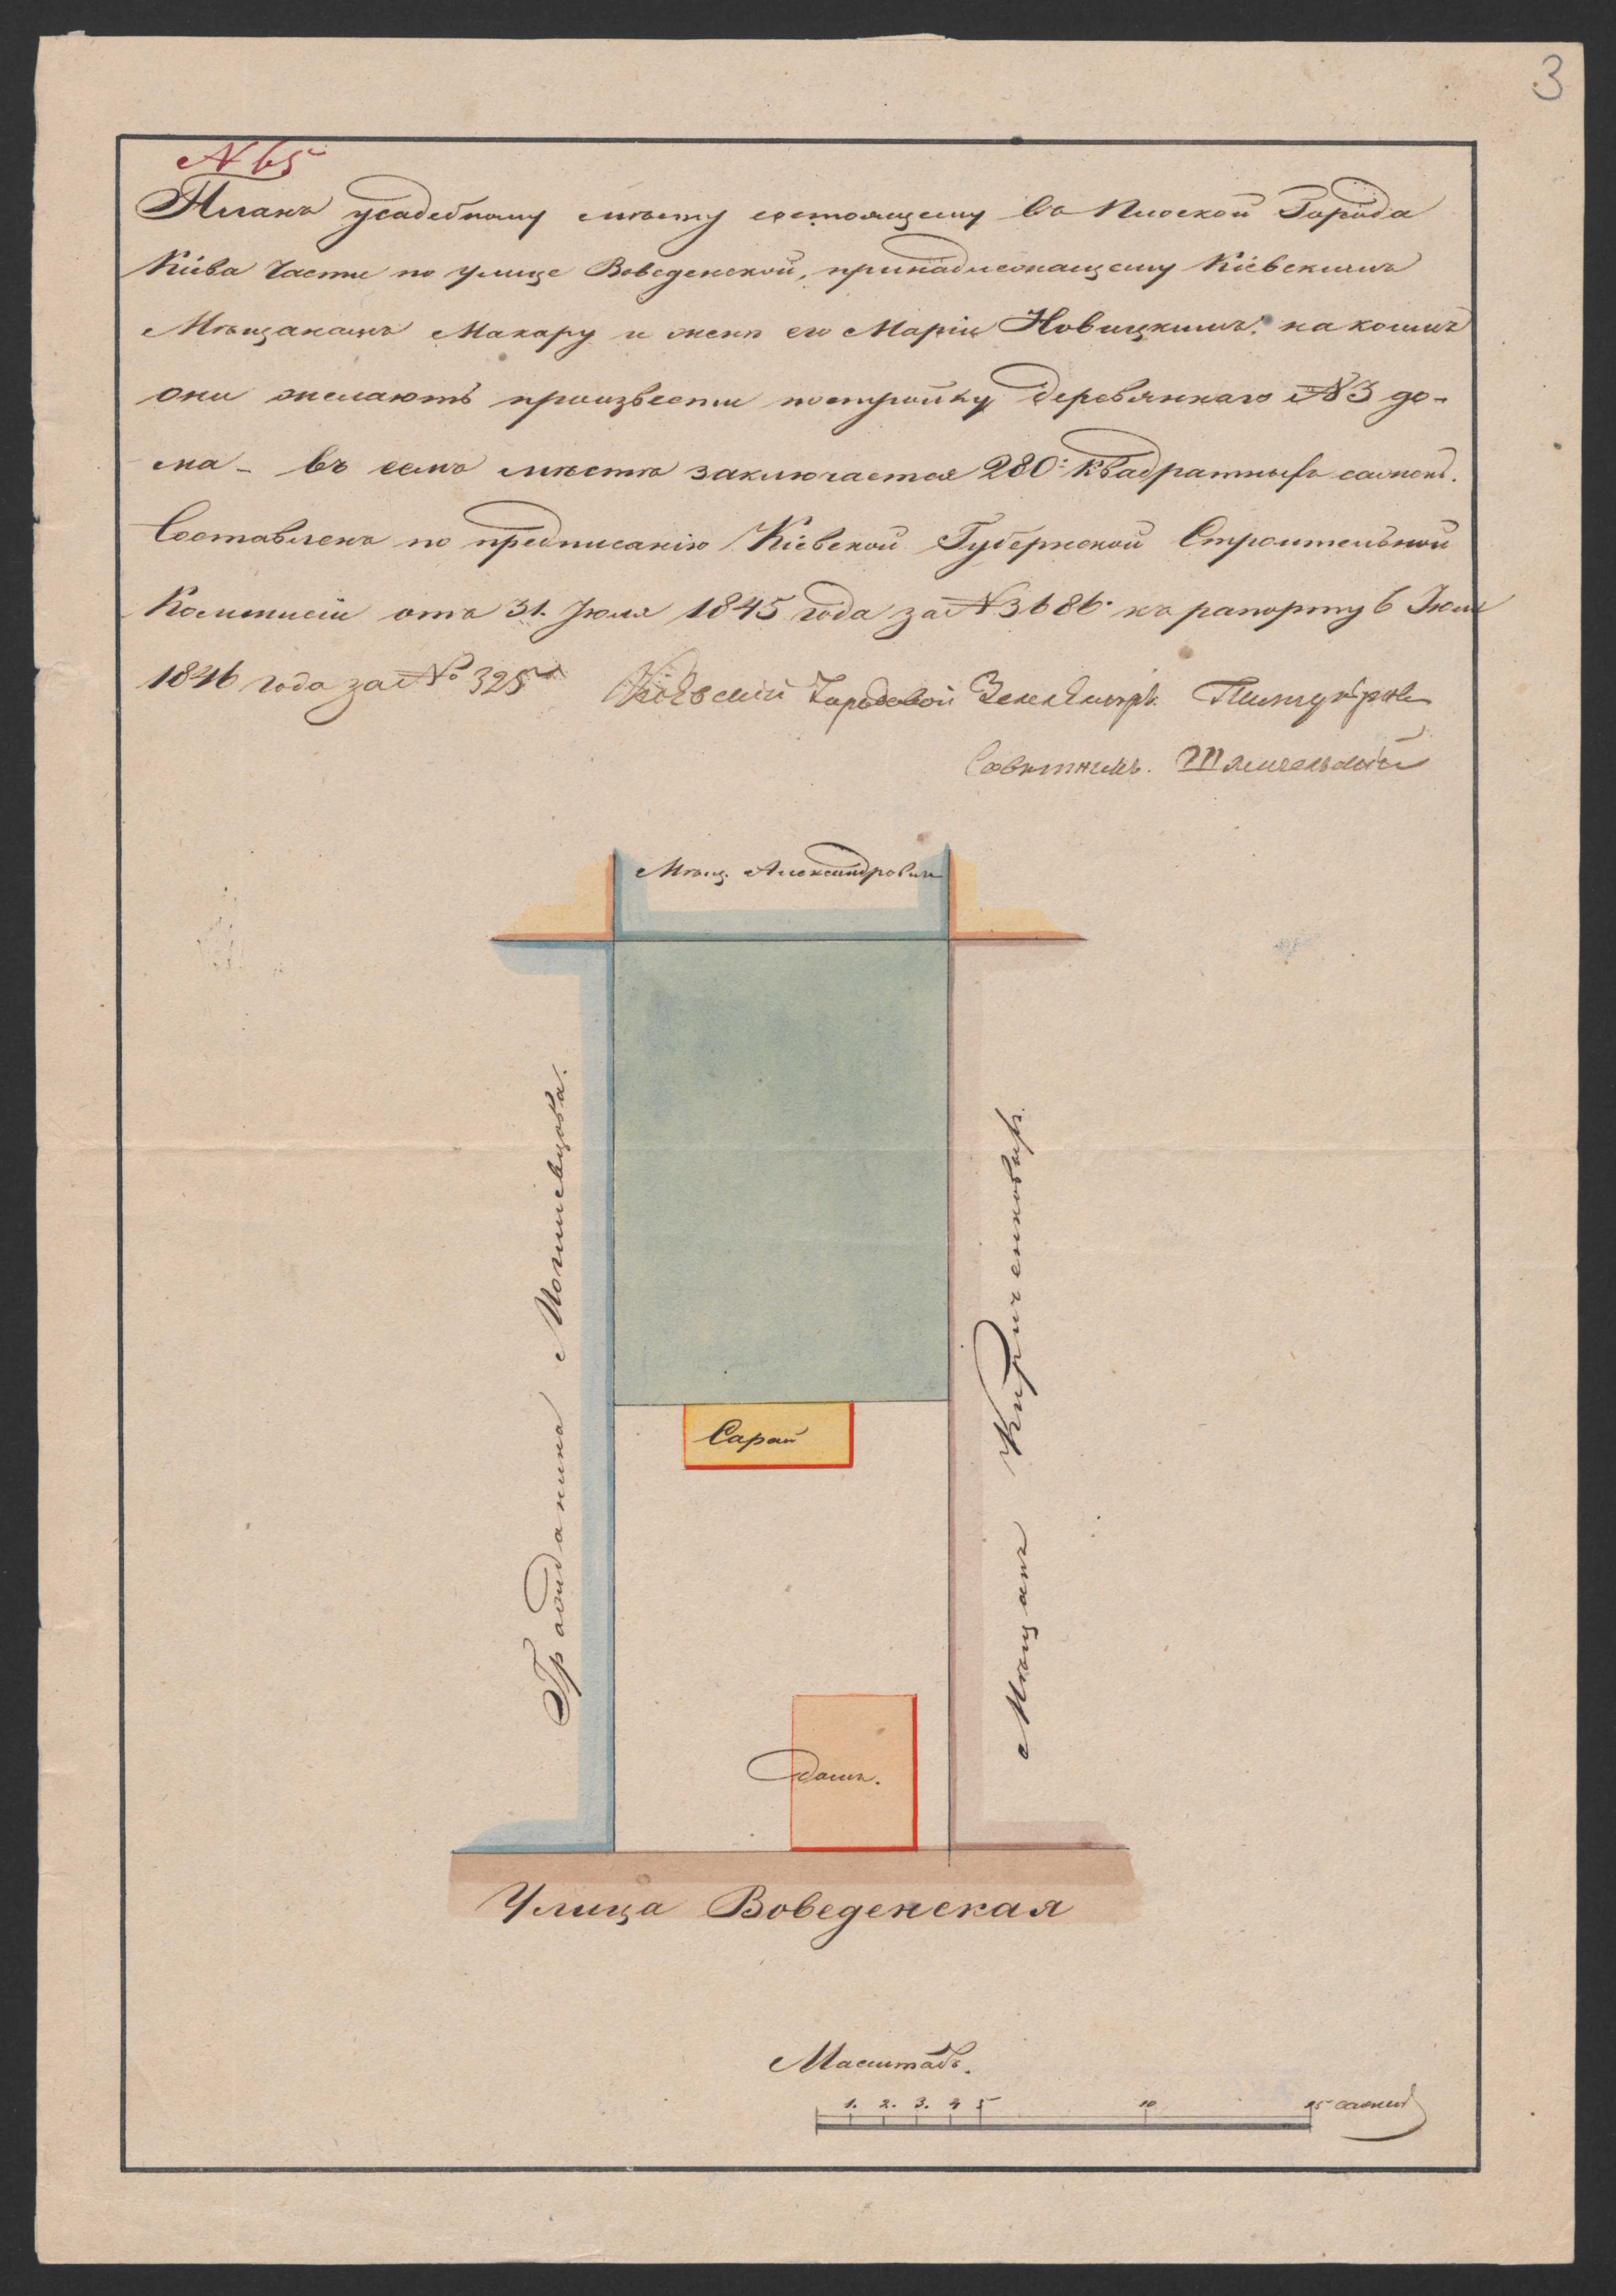 3
N 65
Планъ усадебному мѣсту состоящему въ Плоской Города
Кіева Части по улице Воведенской, принадлежащему Кіевскимъ
Мѣщанамъ Макару и женѣ его Маріи Новицкимъ, на комъ
они желаютъ произвести постройку деревяннаго №3 до-
ма - въ семъ мѣстѣ заключается 280 квадратныхъ сажень.
Составленъ по предписанію Кіевской Губернской Строительной
Комиссіи отъ 31. Іюля 1845 года за №3686. къ рапорту 6 Іюля
1846 года за № 325
Кіевскій Городовой Землемѣръ
Совѣтникъ.
Мѣщ. Александровича
Гражданина Могилевцова.
Мѣщанъ Кириченковыхъ.
Сарай
Домъ.
Улица Воведенская
Масштабъ.
1. 2. 3. 4 5 10 15 сажень